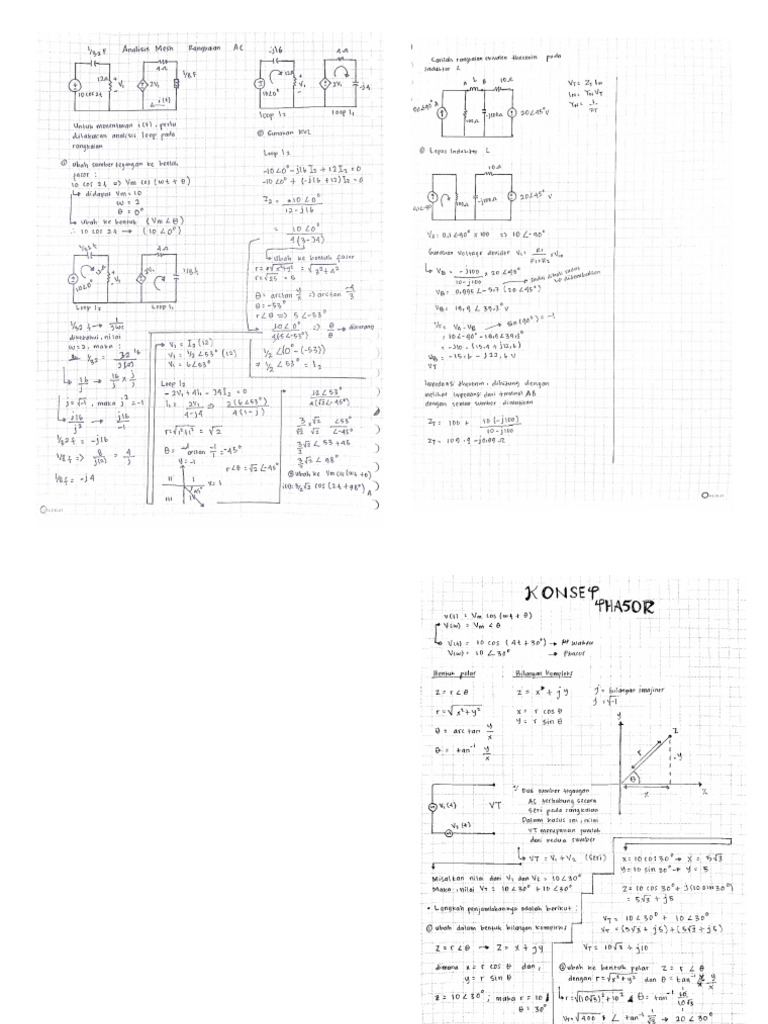 Analisis Mesh Rangkaian AC
1/32 F
4Ω
12Ω
V1
2V1
1/8F
10cos2t
i(t)
Untuk menentukan i(t), perlu
dilakukan analisis loop pada
rangkaian
① Ubah sumber tegangan ke bentuk
fasor :
10 cos 2t => Vm cos (wt + θ)
↳ didapat Vm = 10
w = 2
θ = 0°
↳ Ubah ke bentuk (Vm∠θ)
∴ 10 cos 2t → (10∠0°)
4Ω
10∠0°
2V1
Loop I2
Loop I1
diketahui, nilai
w = 2, maka :
j = √-1, maka j² = -1
1/32 F = -j16
1/8F => 8/j(2) = 4/j
1/8F = -j4
-j16
4Ω
12Ω
V1
2V1
-j4
10∠0°
Loop I2
Loop I1
② Gunakan KVL
Loop I2
-10∠0° - j16 I2 + 12 I2 = 0
-10∠0° + (-j16 + 12) I2 = 0
I2 = 10∠0° / 12 - j16
= 10∠0° / 4(3-j4)
↳ Ubah ke bentuk fasor
r = √x²+y² = √3²+4²
r = √25 = 5
θ = arctan y/x => arctan -4/3
θ = -53°
r∠θ => 5∠-53°
1/2 ∠(0° - (-53))
=> 1/2 ∠53° = I2
V1 = I2 (12)
V1 = 1/2 ∠53° (12)
V1 = 6∠53°
-2V1 + 4I1 - j4 I1 = 0
r = √1²+1² = √2
r∠θ = √2∠-45°
3/2 √2 ∠ 53 + 45
3/2 √2 ∠ 98°
③ Ubah ke Vm cos (wt + θ)
i(t) = 3/2 √2 cos (2t + 98°) A
Contoh rangkaian ekivalen thevenin pada
induktor L
A L B 10Ω
100Ω
-j100Ω
20∠45° V
① Lepas Induktor L
10Ω
-j100Ω
20∠45°
VA = 0,1∠-90° x 100 => 10∠-90°
Gunakan voltage devider
VB = -j100 / 10-j100 x 20∠45°
VB = 0,995∠-5,7 (20∠45°)
VB = 19,9∠39,3° V
VT = VA - VB
sin (90°) = -1
= 10∠-90° - 19,9∠39,3°
= -j10 - (15,4 + j12,6)
= -15,4 - j22,6 V
Impedansi thevenin, dihitung dengan
melihat impedansi dari terminal AB
dengan semua sumber dimatikan
ZT = 100 + 10(-j100) / 10-j100
ZT = 109,9 - j0,99 Ω
KONSEP
PHASOR
v(t) = Vm cos (wt + θ)
V(w) = Vm ∠θ
V(t) = 10 cos (4t + 30°) → F waktu
V(w) = 10∠30° → Phasor
Bentuk polar
Bilangan kompleks
Z = r∠θ
Z = x + jy
j = bilangan imajiner
j = √-1
r = √x²+y²
x = r cos θ
y = r sin θ
θ = arc tan y/x
θ = tan⁻¹ y/x
y
z
r
θ
x
y
V1(t)
V2(t)
VT
Dua sumber tegangan
AC terhubung secara
seri pada rangkaian
Dalam kasus ini, nilai
VT merupakan jumlah
dari kedua sumber
↳ VT = V1 + V2 (seri)
Misalkan nilai dari V1 dan V2 = 10∠30°
Maka, nilai VT = 10∠30° + 10∠30°
• Langkah penjumlahannya adalah berikut :
① Ubah dalam bentuk bilangan kompleks
Z = r∠θ → Z = x + jy
dimana x = r cos θ dan,
y = r sin θ
Z = 10∠30° ; maka r = 10
θ = 30°
x = 10 cos 30° → x = 5√3
y = 10 sin 30° → y = 5
Z = 10 cos 30° + j(10 sin 30°)
= 5√3 + j5
VT = 10∠30° + 10∠30°
VT = (5√3 + j5) + (5√3 + j5)
VT = 10√3 + j10
② Ubah ke bentuk polar Z = r∠θ
dengan r = √x²+y² dan θ = tan⁻¹ y/x
r = √(10√3)² + 10² & θ = tan⁻¹ 10/10√3
VT = √400 ∠ tan⁻¹ 1/√3 → 20∠30°